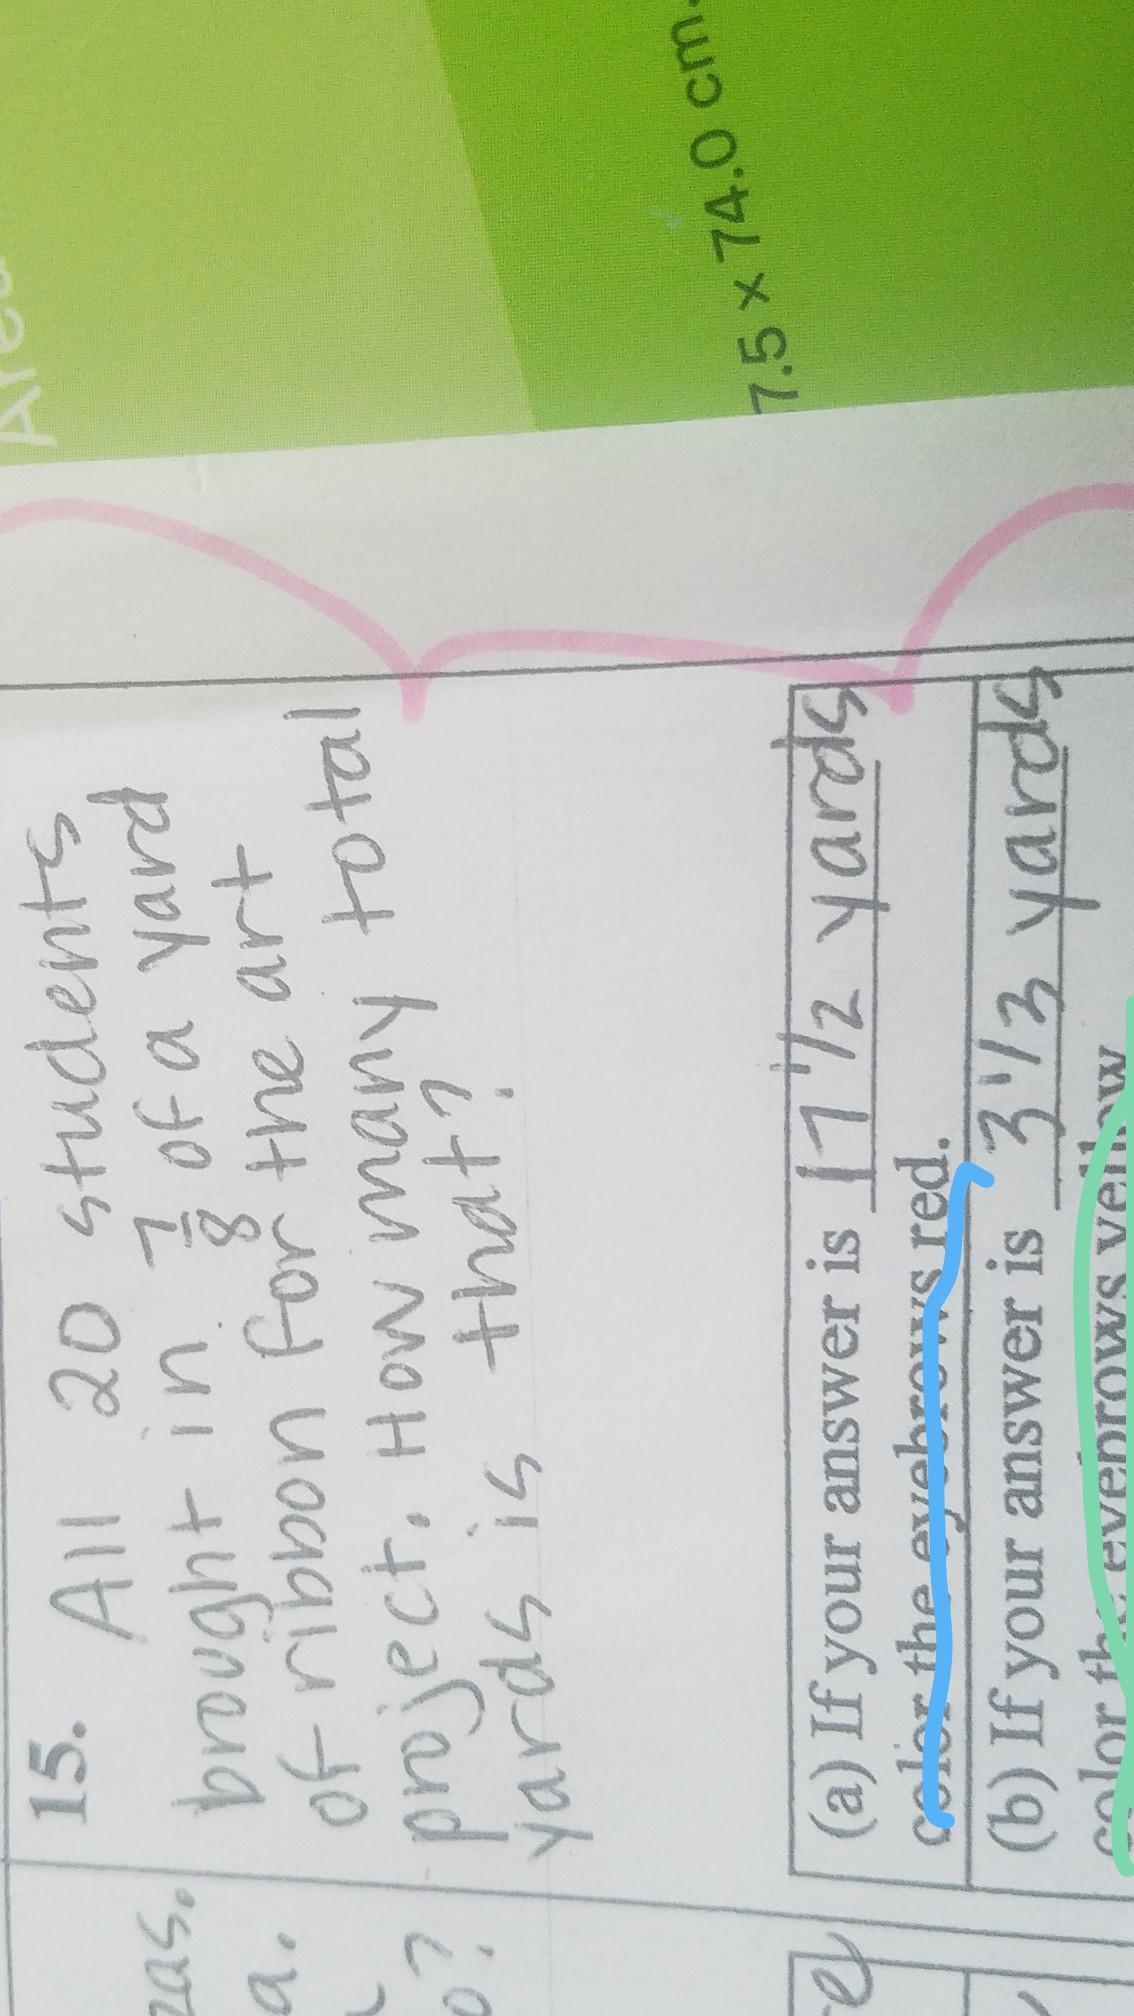 Area
7.5 x 74.0 cm.
15. All 20 students
brought in 7/8 of a yard
of ribbon for the art
project. How many total
yards is that?
(a) If your answer is 17 1/2 yards
color the eyebrows red.
(b) If your answer is 3 1/3 yards
color the eyebrows yellow
zas.
a.
o?